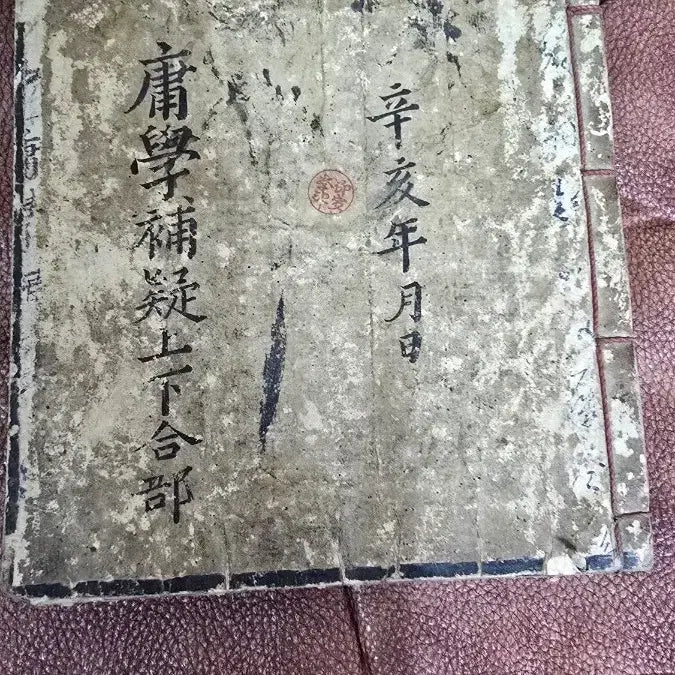 辛亥年月日
庸學補疑上下合部